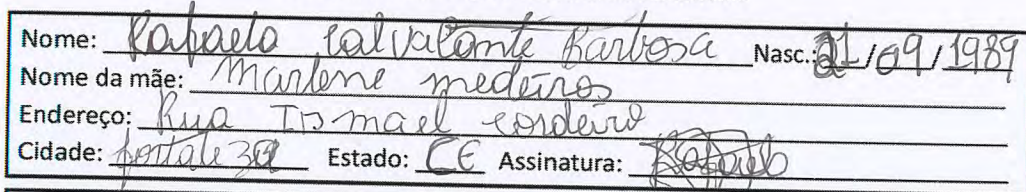 Nome: Rafaela Calvalcante Barbosa Nasc.: 21/09/1989
Nome da mãe: Marlene medeiros
Endereço: Rua Ismael cordeiro
Cidade: fortaleza Estado: CE Assinatura: Rafaela